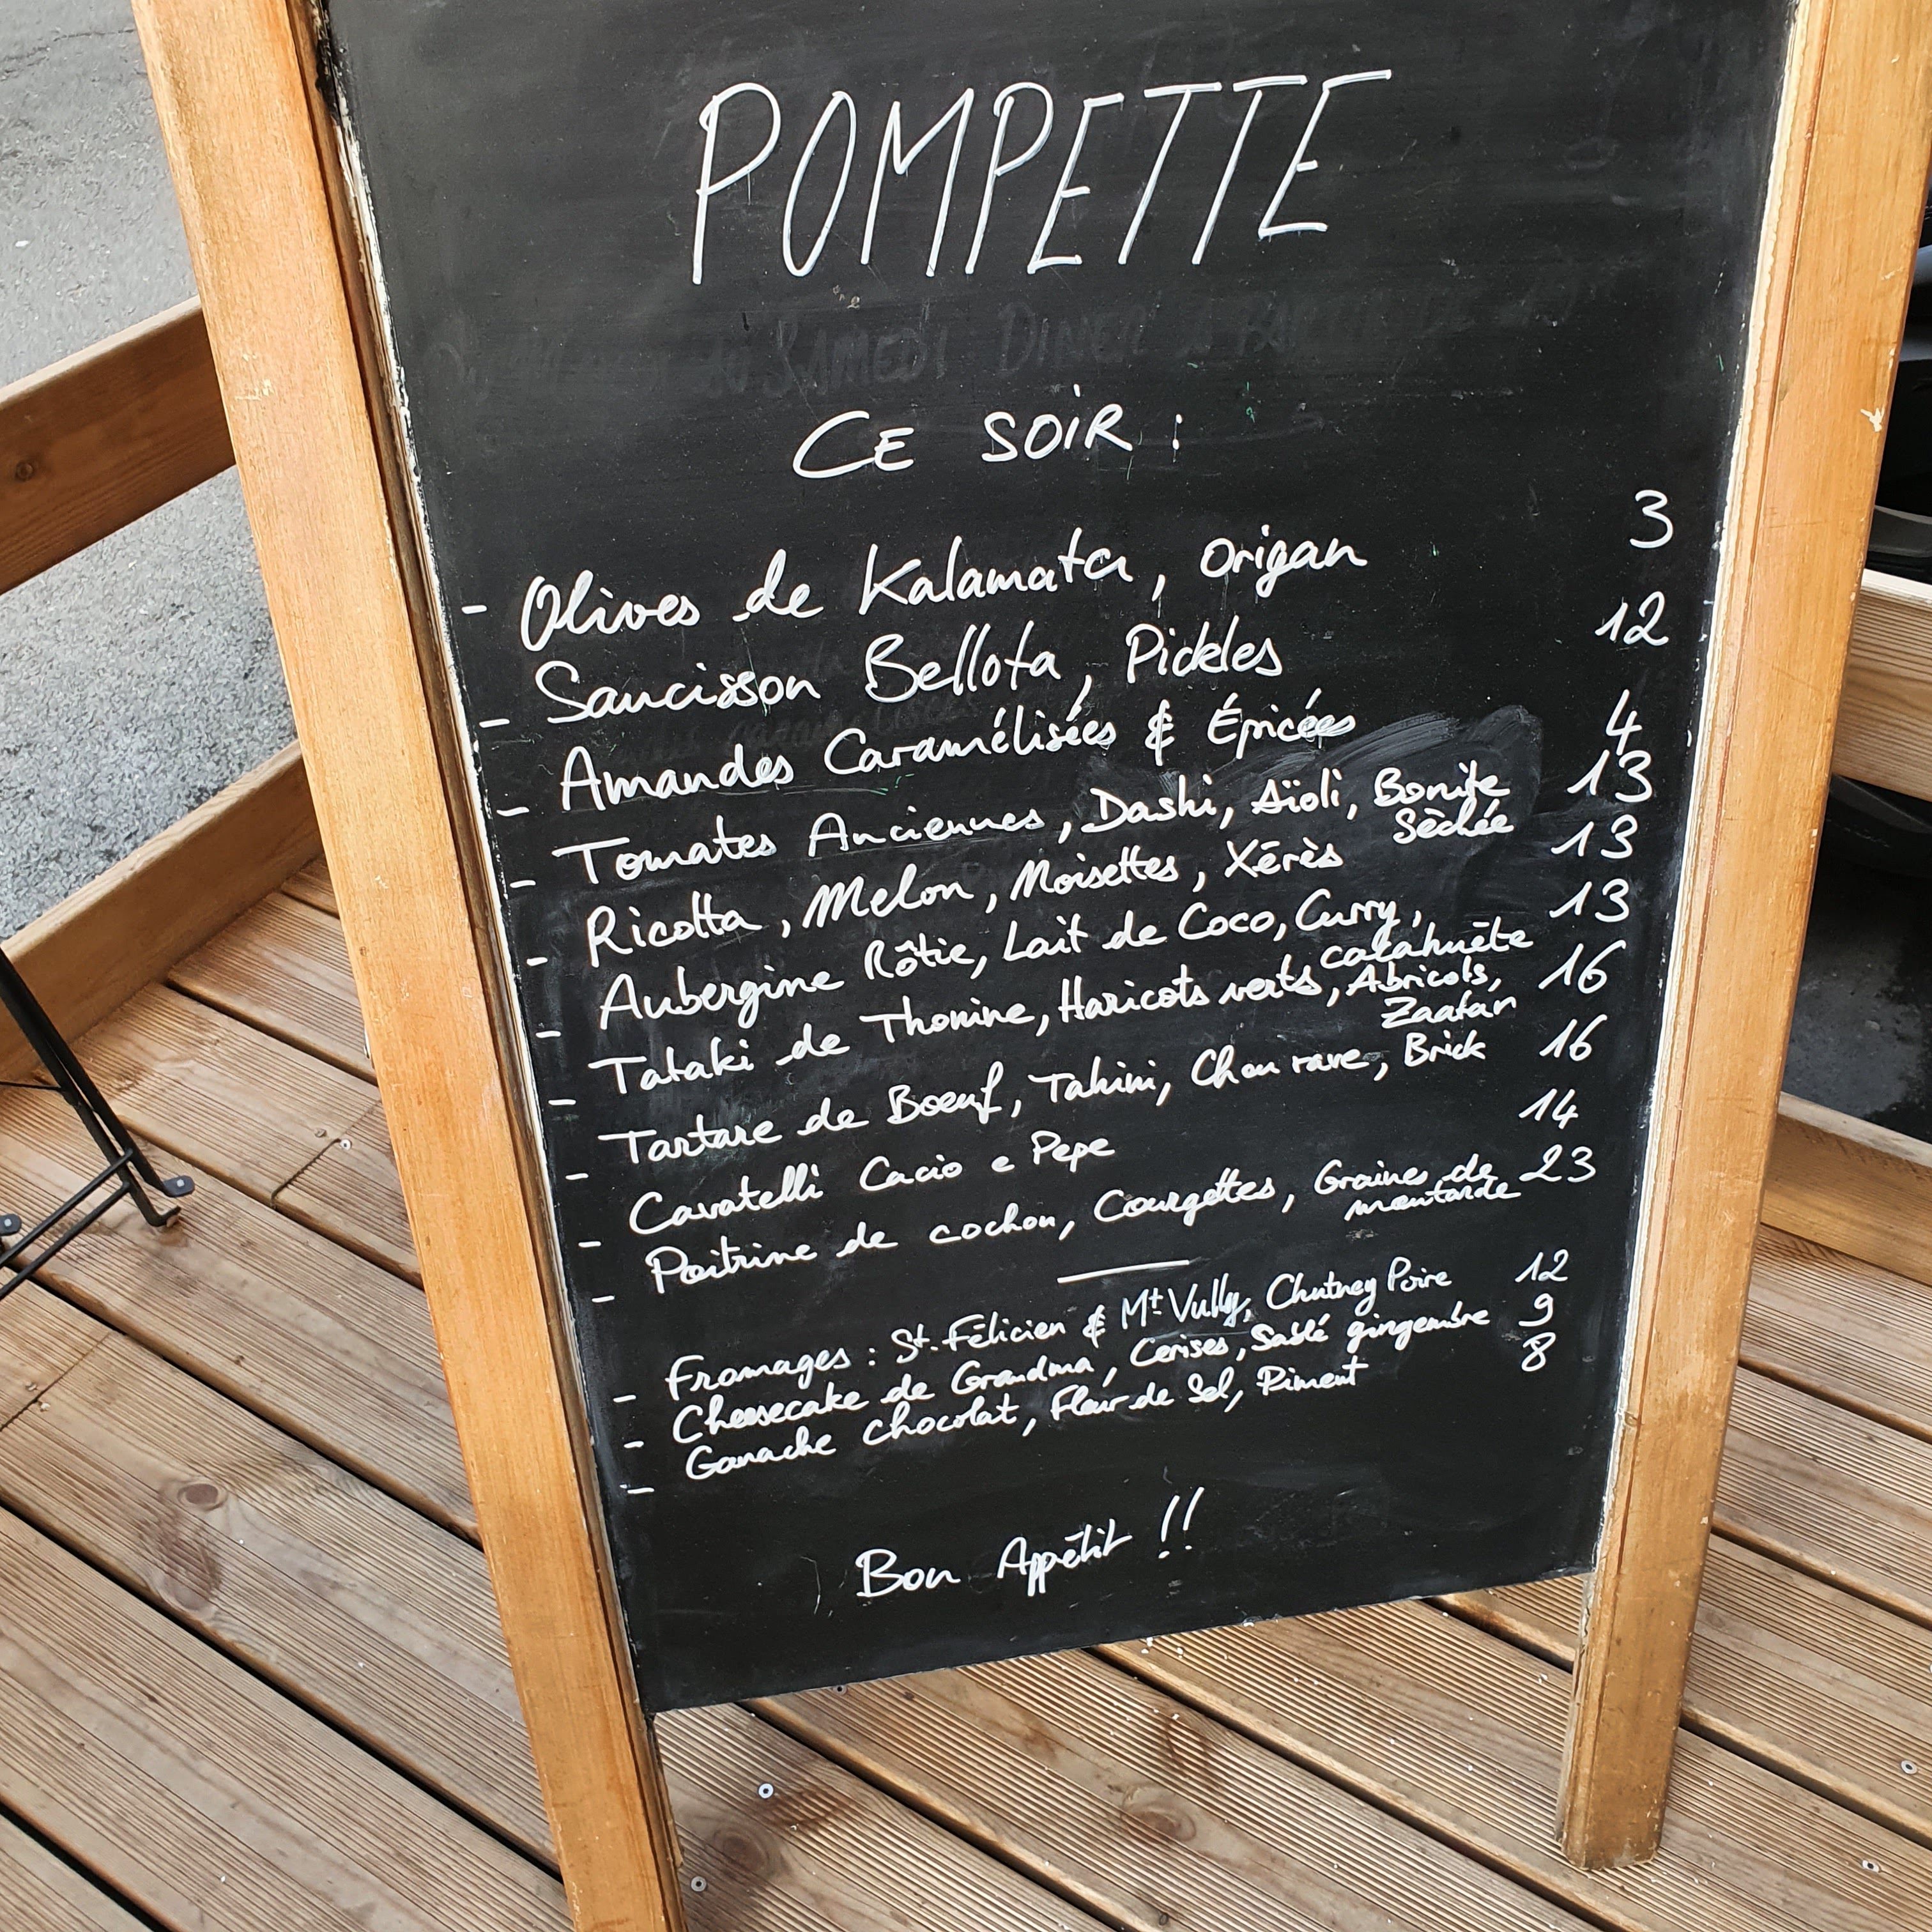 POMPETTE
CE SOIR :
- Olives de Kalamata, origan 3
- Saucisson Bellota, Pickles 12
- Amandes Caramélisées & Épicées 4
- Tomates Anciennes, Dashi, Aïoli, Bonite 13
Sèchée
- Ricotta, Melon, Noisettes, Xérès 13
- Aubergine Rôtie, Lait de Coco, Curry, 13
cacahuète
- Tataki de Thonine, Haricots verts, Abricots, 16
Zaatar
- Tartare de Boeuf, Tahini, Chou rave, Brick 16
- Cavatelli Cacio e Pepe 14
- Poitrine de cochon, Courgettes, Graines de 23
moutarde
- Fromages : St. Félicien & Mt Vully, Chutney Poire 12
- Cheesecake de Grandma', Cerises, Sablé gingembre 9
- Ganache chocolat, Fleur de Sel, Piment 8
Bon Appétit !!